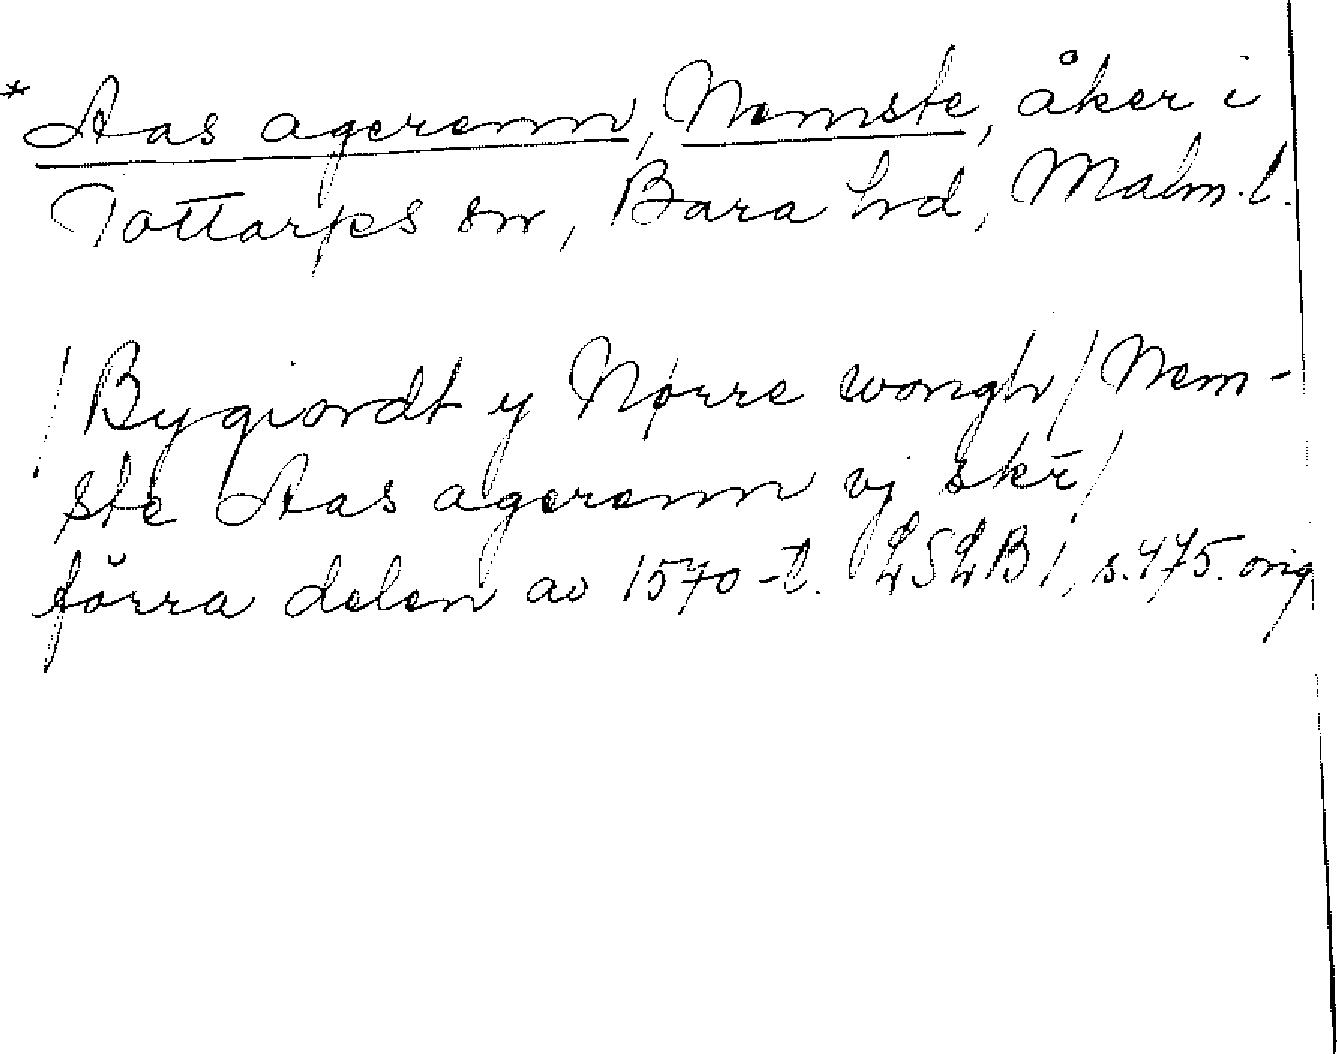 * Aas agerenn, Nemste, åker i
Tottarps sn, Bara hd, Malm. l.
/Bygiordt y Nørre wongh/Nem-
ste Aas agerenn vj skr̄/
förra delen av 1570-t. LSLB 1, s. 475. orig